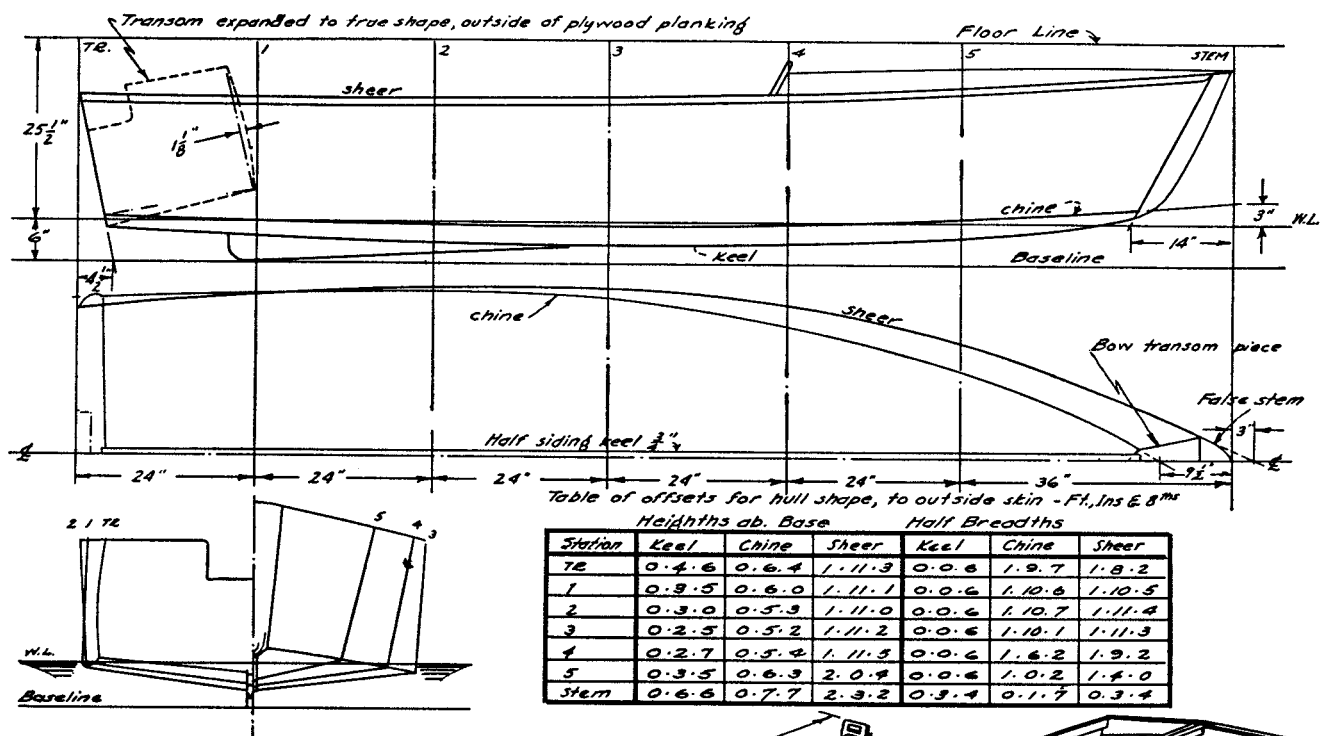 Transom expanded to true shape, outside of plywood planking
Floor Line
TR.
1
2
3
4
5
STEM
sheer
25 1/2"
1 1/8"
chine
3"
W.L.
6"
14"
keel
Baseline
4 1/2"
chine
sheer
Bow transom piece
False stem
3"
Half siding keel 3/4"
24"
24"
24"
24"
24"
36"
9 1/2"
Table of offsets for hull shape, to outside skin - Ft., Ins & 8ths
Heighths ab. Base Half Breadths
Station Keel Chine Sheer Keel Chine Sheer
TR 0.4.6 0.6.4 1.11.3 0.0.6 1.9.7 1.8.2
1 0.3.5 0.6.0 1.11.1 0.0.6 1.10.6 1.10.5
2 0.3.0 0.5.3 1.11.0 0.0.6 1.10.7 1.11.4
3 0.2.5 0.5.2 1.11.2 0.0.6 1.10.1 1.11.3
4 0.2.7 0.5.4 1.11.5 0.0.6 1.6.2 1.9.2
5 0.3.5 0.6.3 2.0.4 0.0.6 1.0.2 1.4.0
Stem 0.6.6 0.7.7 2.3.2 0.3.4 0.1.7 0.3.4
2 1 TR
5
4
3
W.L.
Baseline